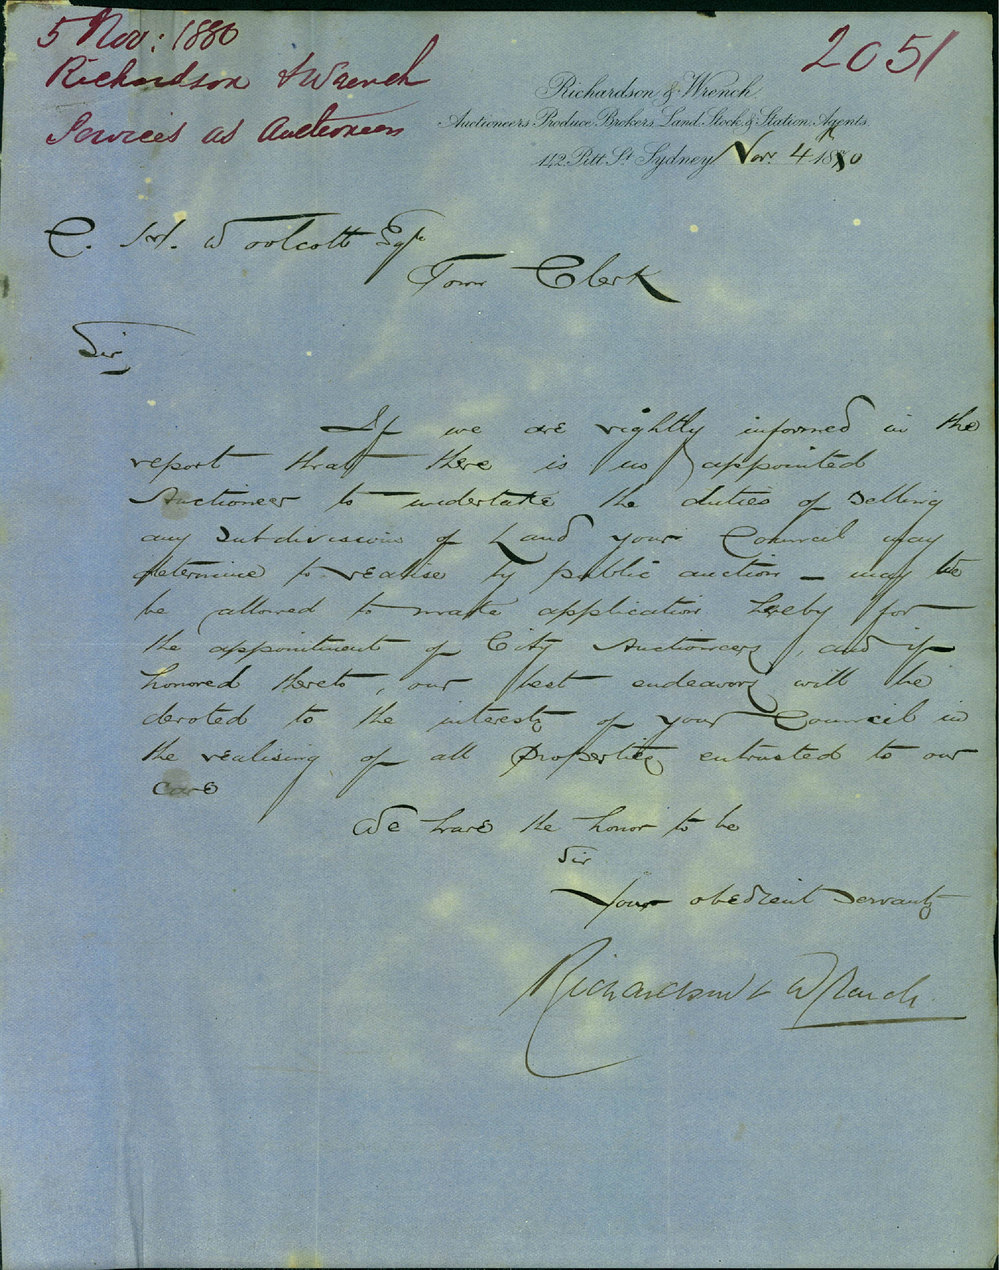 5 Nov: 1880
Richardson & Wrench
Services as Auctioneers
2051
Richardson & Wrench
Auctioneers Produce Brokers, Land, Stock & Station Agents
142 Pitt St. Sydney Nov. 4 1880
C. H. Woolcott Esqre
Town Clerk
Sir,
If we are rightly informed in the
report that there is no appointed
Auctioneer to undertake the duties of selling
any subdivisions of Land your Council may
determine to realise by public auction — may we
be allowed to make application hereby for
the appointment of City Auctioneers, and if
honored thereto, our best endeavors will be
devoted to the interests of your Council in
the realising of all properties entrusted to our
care
We have the honor to be
Sir
Your obedient servants
Richardson & Wrench